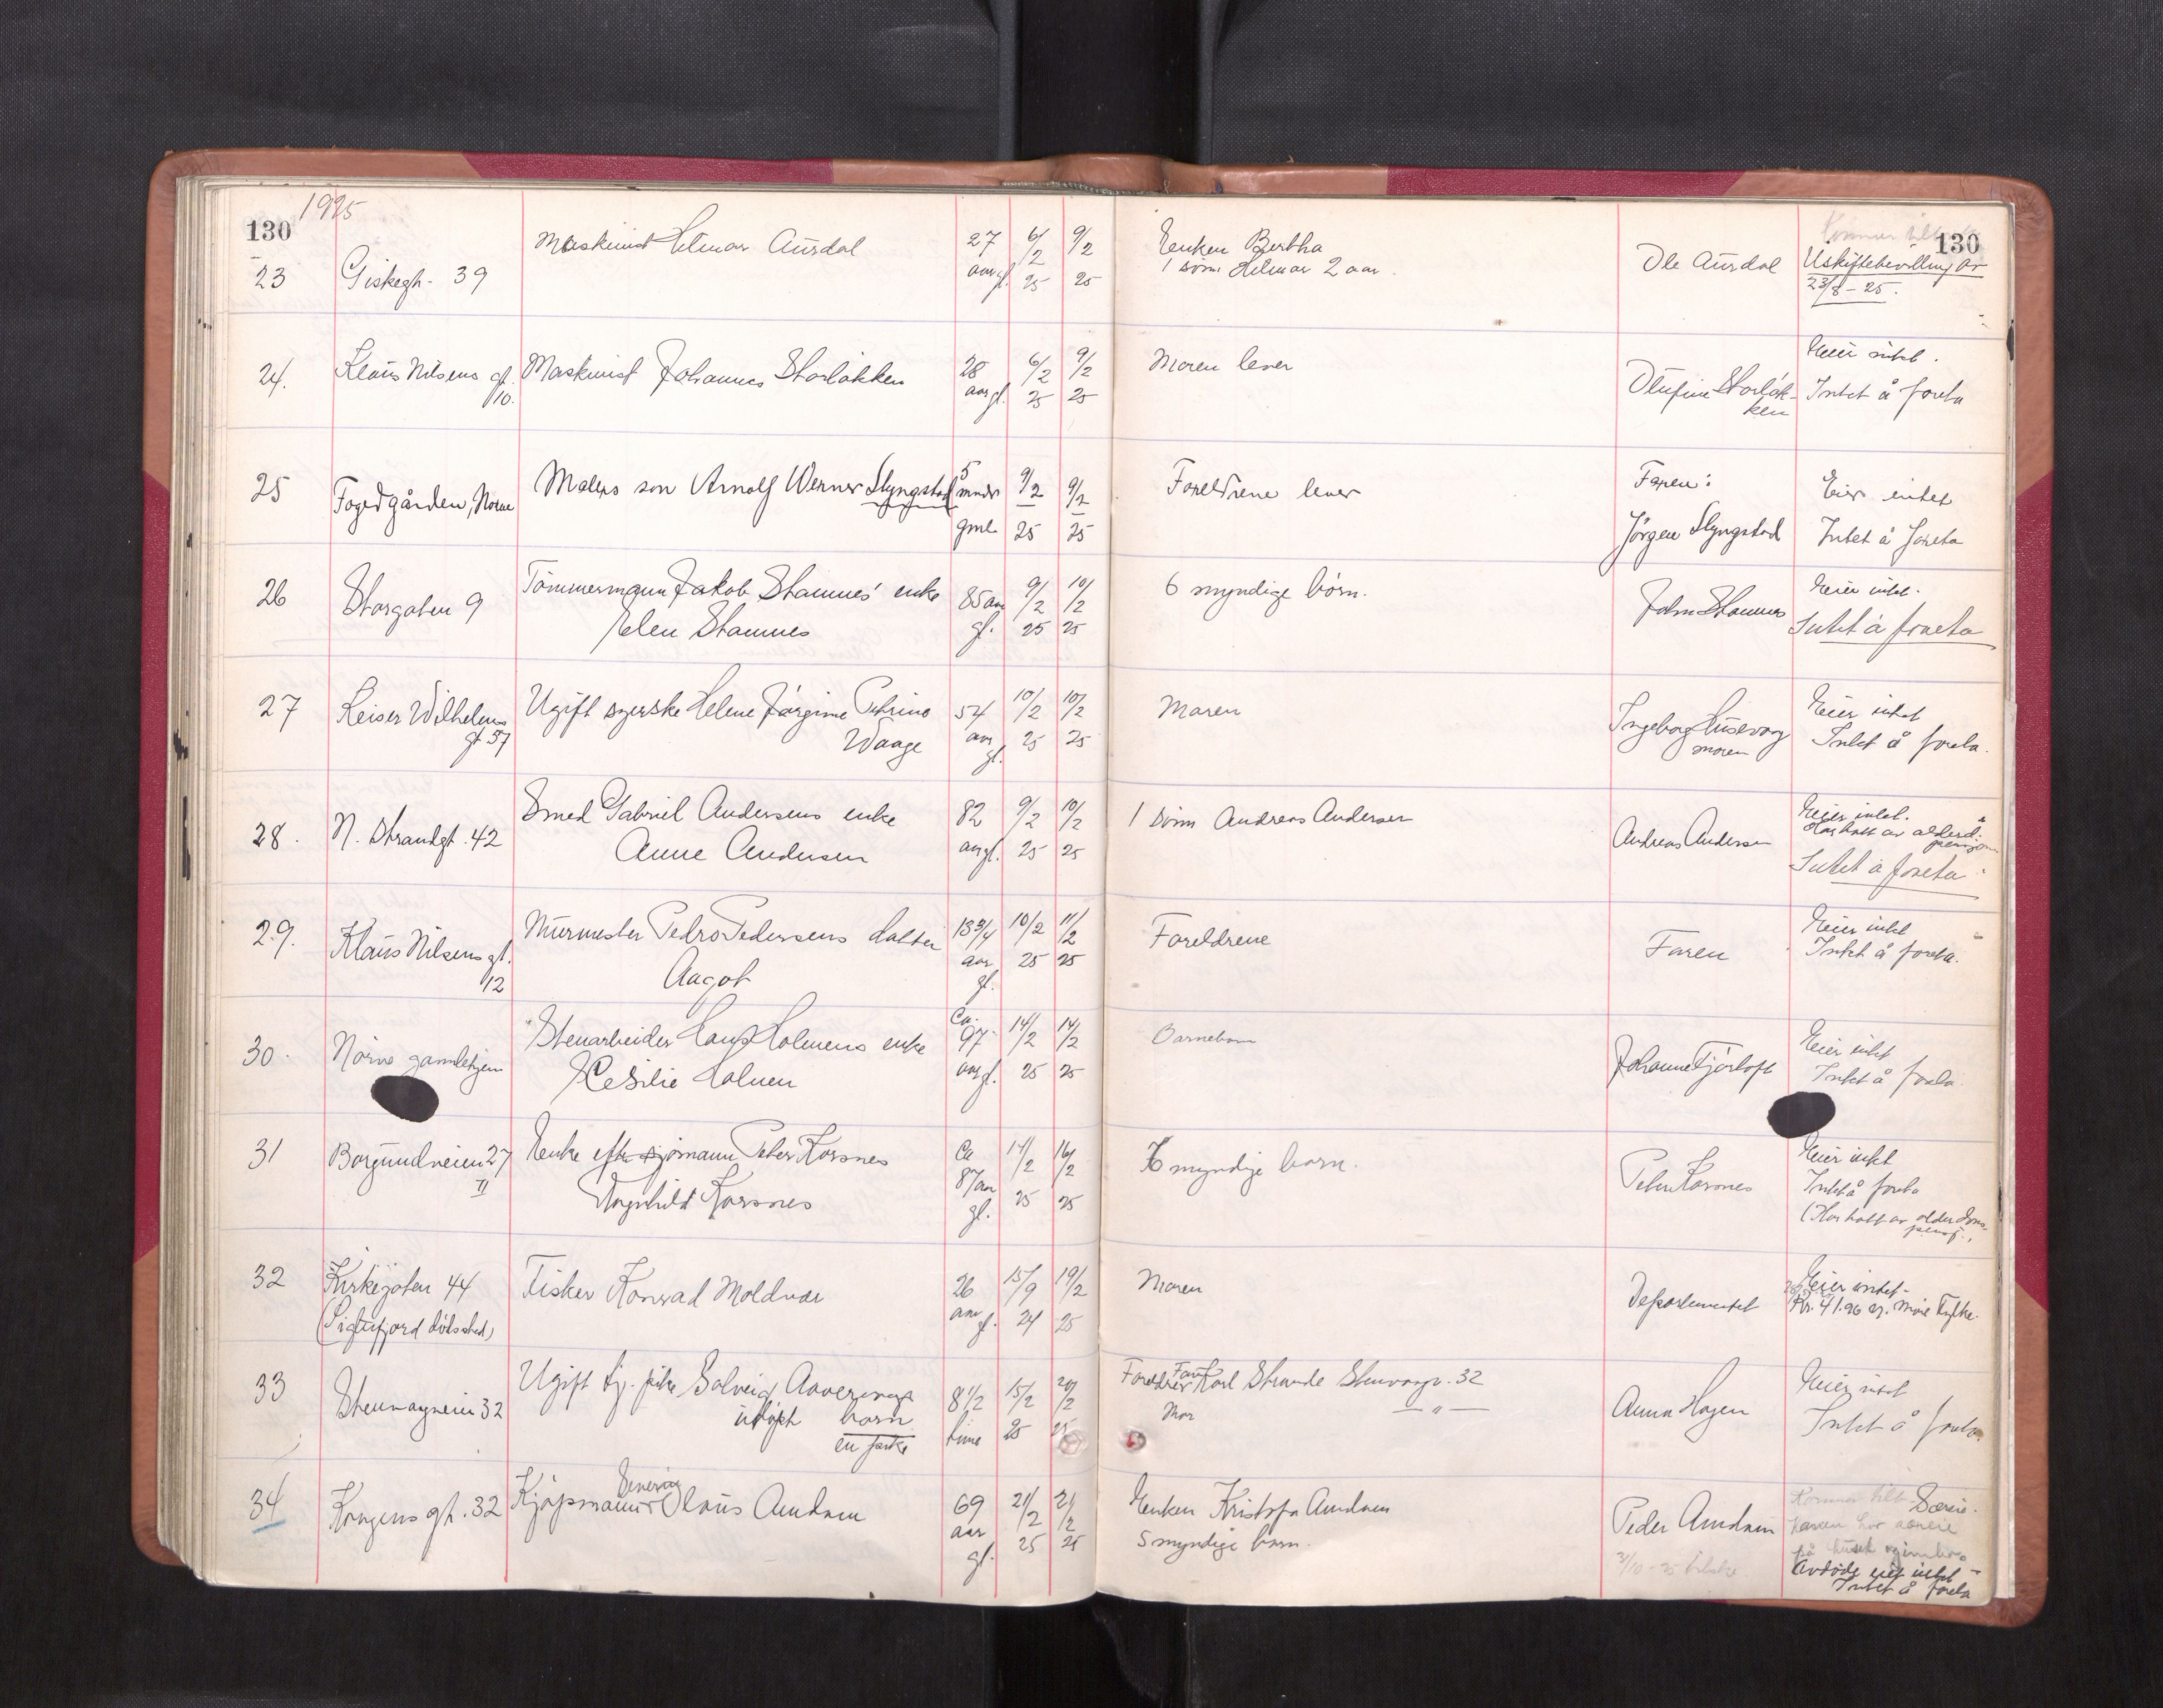 1925
130
130
23
Giskegt. 39
Maskinist Hilmar Aursdal
27 aar gl.
6/2 25
9/2 25
Enken Bertha
1 sønn Hilmar 2 aar.
Ole Aursdal
Uskiftebevilling av
23/8-25.
24.
Klaus Nilsens gt.
10.
Maskinist Johannes Storløkken
28 aar gl.
6/2 25
9/2 25
Moren lever
Olufine Storløk-
ken
Eier intet.
Intet å foreta
25
Fogedgården, Nørve
Malers søn Arnolf Werner Slyngstad
5 mndr gml
9/2 25
9/2 25
Foreldrene lever
Faren:
Jørgen Slyngstad
Eier intet
Intet å foreta
26
Storgaten 9
Tømmermann Jakob Stamnes' enke
Helen Stamnes
85 aar gl.
9/2 25
10/2 25
6 myndige børn.
John Stamnes
Eier intet.
Intet å foreta
27
Keiser Wilhelms
gt 57
Ugift syerske Helene Jørgine Petrine
Waage
54 aar gl.
10/2 25
10/2 25
Moren
Ingeborg Husevåg
moren
Eier intet
Intet å foreta.
28.
N. Strandgt. 42
Smed Gabriel Andersens enke
Anne Andersen
82 aar gl.
9/2 25
10/2 25
1 sønn Andreas Andersen
Andreas Andersen
Eier intet.
Har hatt av alderd.
pensjon
Intet å foreta
29.
Klaus Nilsens gt.
12
Murmester Pedro Pedersens datter
Aagot
13 3/4 aar gl.
10/2 25
11/2 25
Foreldrene
Faren
Eier intet
Intet å foreta.
30.
Nørve gamlehjem
Stenarbeider Hans Holmens enke
Cesilie Holmen
Ca. 97 aar gl.
14/2 25
14/2 25
Barnebarn
Johanne Fjørtoft
Eier intet
Intet å foreta
31
Borgundveien 27
II
Enke efter sjømann Peter Korsnes
Ragnhild Korsnes
Ca 87 aar gl.
14/2 25
16/2 25
6 myndige barn.
Peter Korsnes
Eier intet
Intet å foreta
(Har hatt av alderdoms
pensj.)
32
Kirkegaten 44
(Siglufjord dødssted)
Fisker Konrad Moldvær
26 aar gl.
15/9 24
19/2 25
Moren
Departementet
Eier intet-
Kr. 41.96 Møre Fylke.
33
Stenvaagveien 32
Ugift tj. pike Solveig
udøpt barn
en pike
8 1/2 time
15/2 25
20/2 25
Foreldrer Far Karl Strande Stenvaagv. 32
Mor — " —
Anna Hagen
Eier intet
Intet å foreta.
34
Kongens gt. 32
Kjøpmann Olaus Amdam
69 aar gl.
21/2 25
21/2 25
Enken Kristofa Amdam
5 myndige barn.
Peder Amdam
3/10-25
Særeie.
Avdøde eiet intet -
Intet å foreta